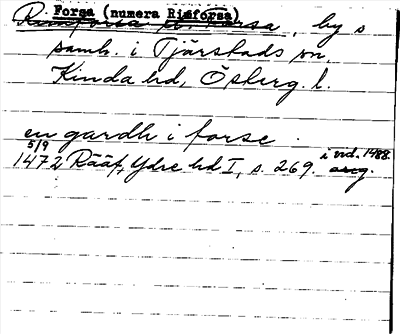 Forsa (numera Rimforsa)
by o
samh. i Tjärstads sn,
Kinda hd, Österg. l.
en gardh i forse
5/9 i vid. 1488.
1472 Rääf, Ydre hd I, s. 269. orig.